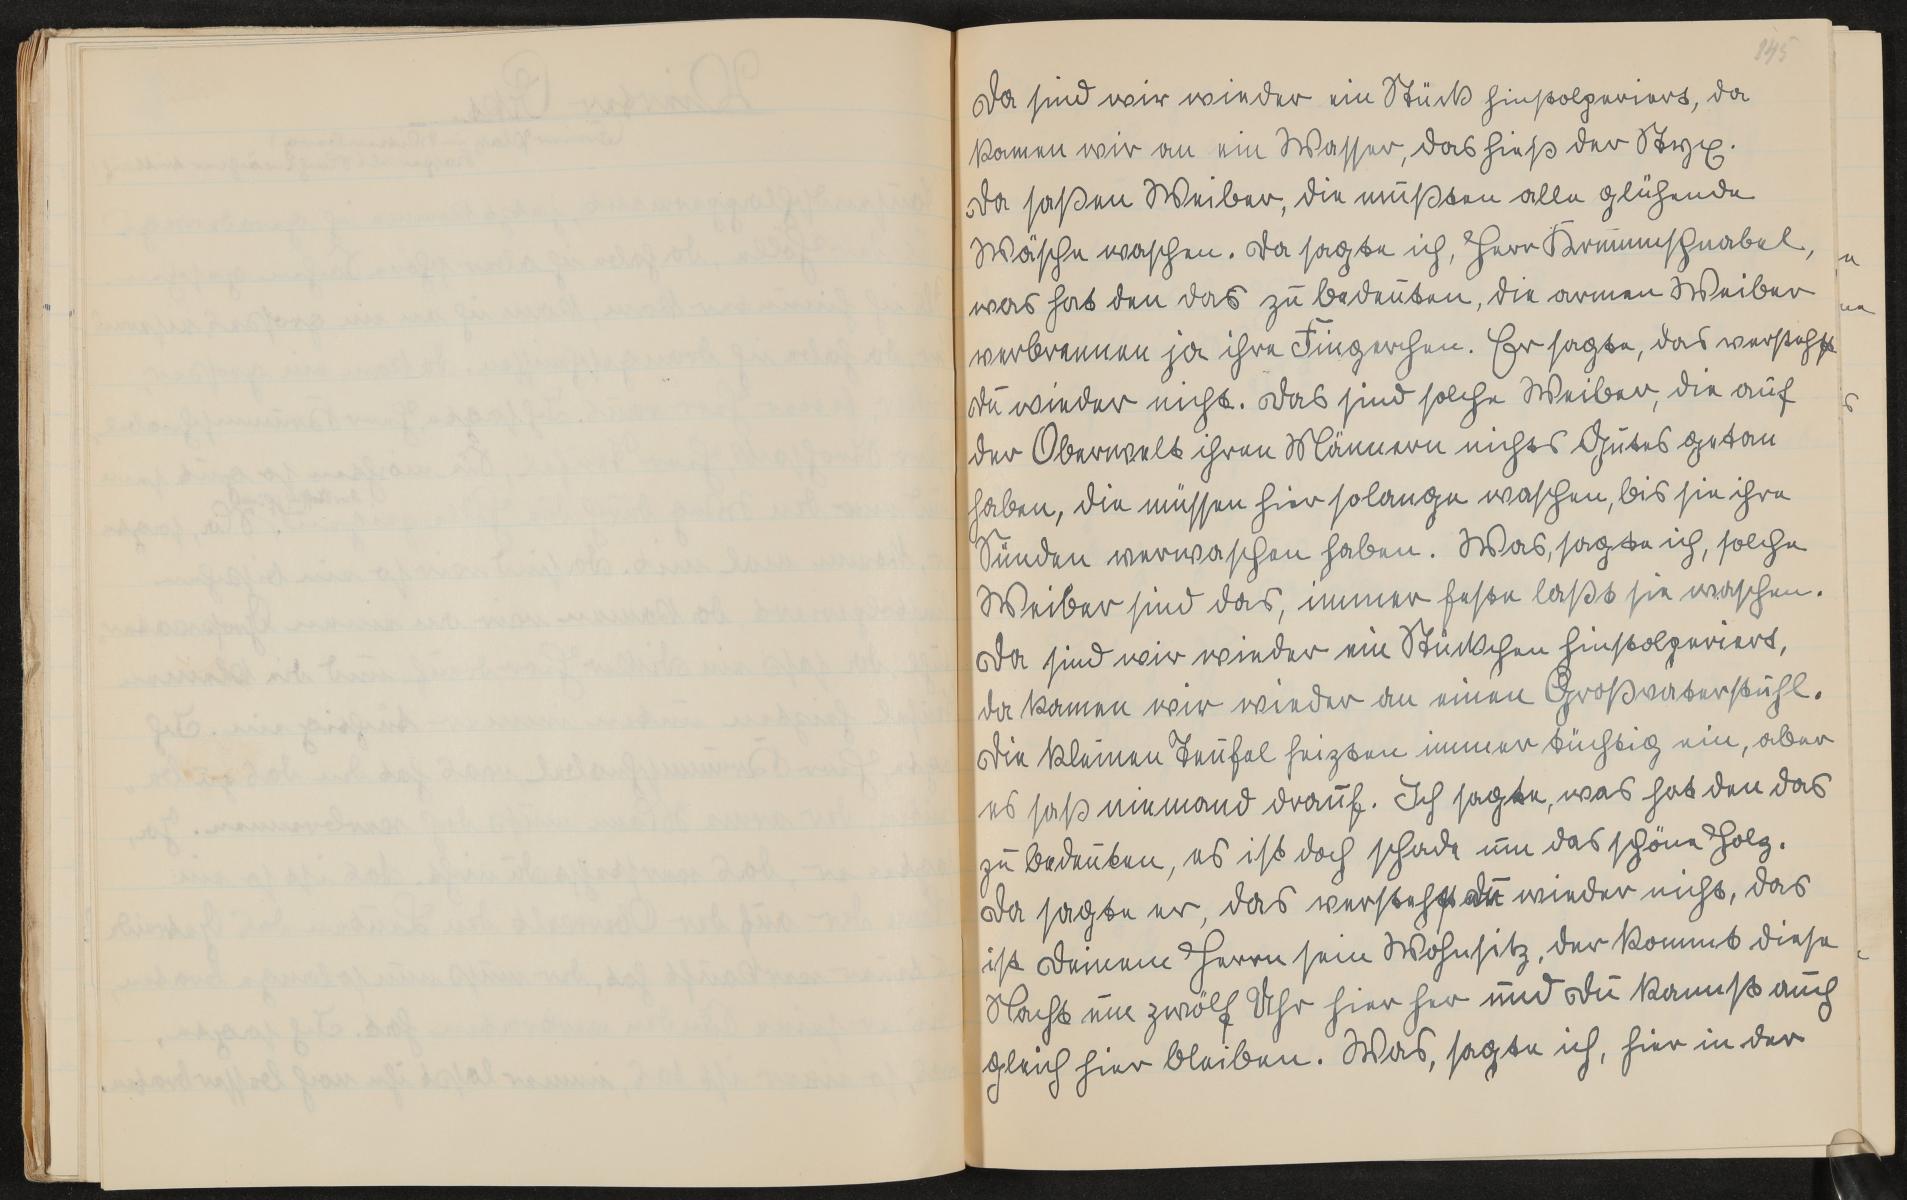 145
Da sind wir wieder ein Stück hinstolperiert, da
kamen wir an ein Wasser, das hieß der Styx.
Da saßen Weiber, die mußten alle glühende
Wäsche waschen. Da sagte ich, Herr Krummschnabel,
was hat den das zu bedeuten, die armen Weiber
verbrennen ja ihre Fingerchen. Er sagte, das verstehst
du wieder nicht. Das sind solche Weiber, die auf
der Oberwelt ihren Männern nichts Gutes getan
haben, die müssen hier solange waschen, bis sie ihre
Sünden verwaschen haben. Was, sagte ich, solche
Weiber sind das, immer feste laßt sie waschen.
Da sind wir wieder ein Stückchen hinstolperiert,
da kamen wir wieder an einen Großvaterstuhl.
Die kleinen Teufel heizten immer tüchtig ein, aber
es saß niemand drauf. Ich sagte, was hat den das
zu bedeuten, es ist doch schade um das schöne Holz.
Da sagte er, das verstehst du wieder nicht, das
ist deinem Herrn sein Wohnsitz, der kommt diese
Nacht um zwölf Uhr hier her und du kannst auch
gleich hier bleiben. Was, sagte ich, hier in der